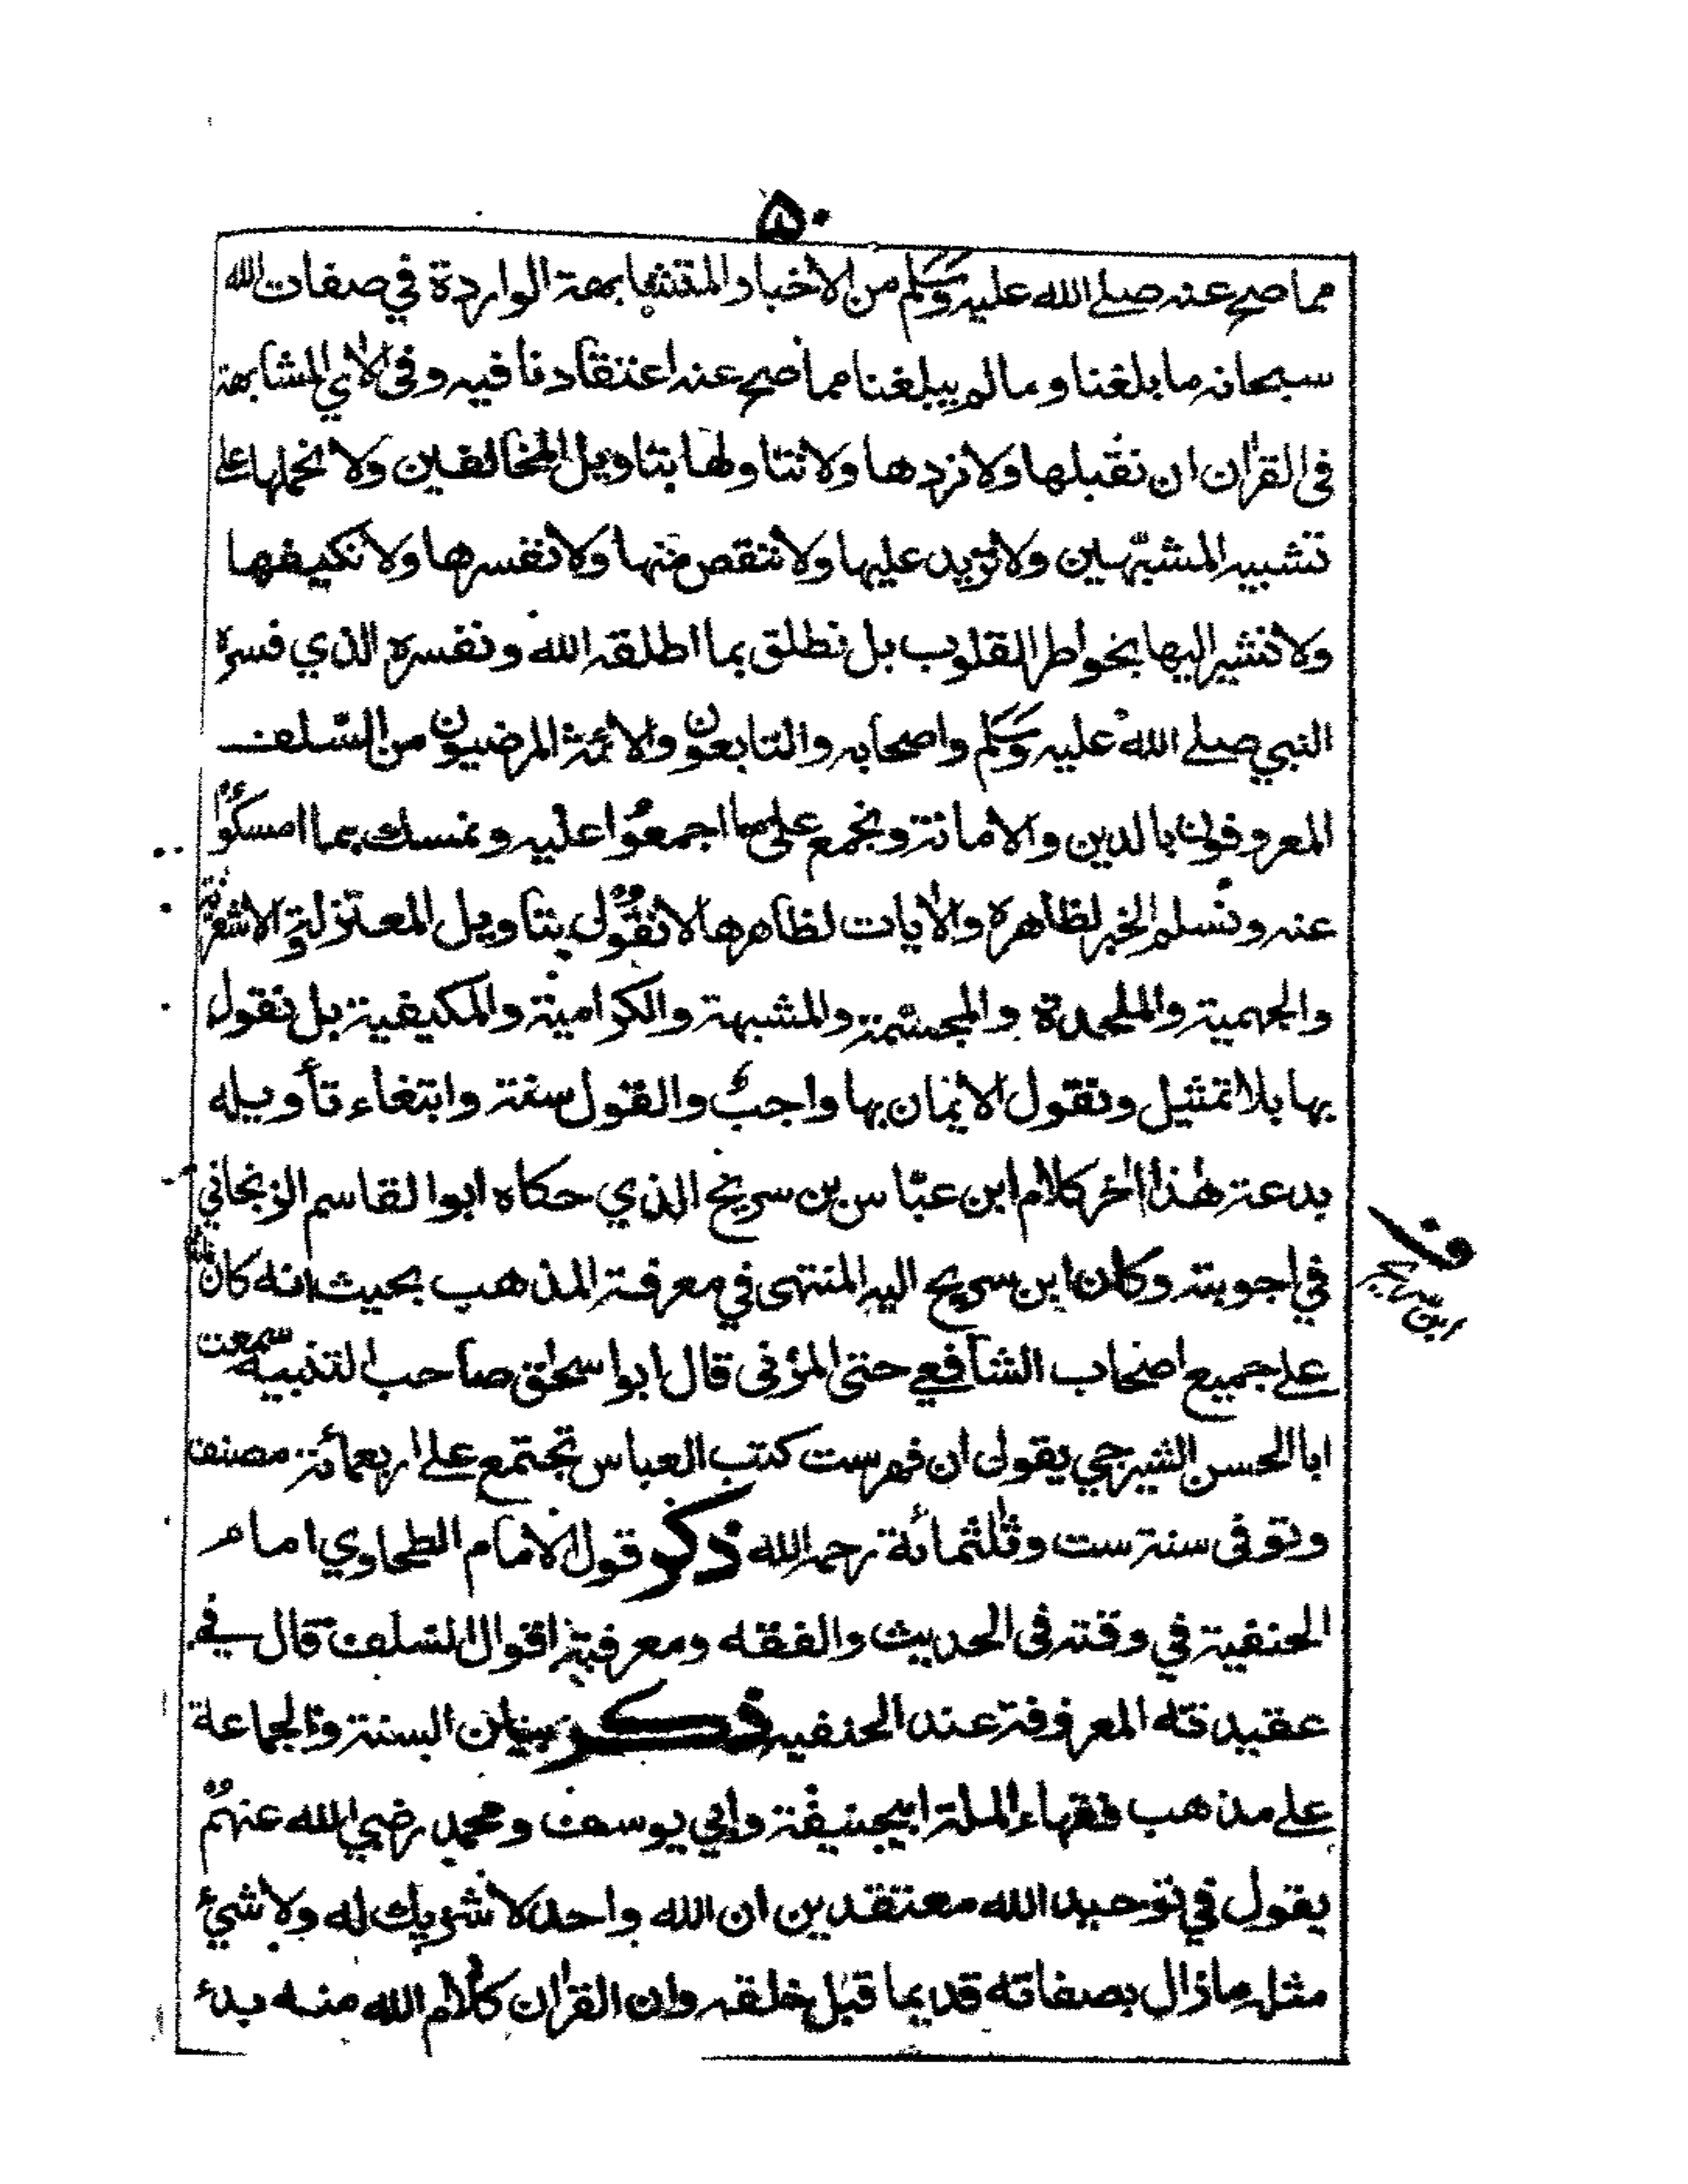 ۵۰
مما صح عنه صلى الله عليه وسلم من الاخبار المتشابهة الواردة في صفات الله
سبحانه ما بلغنا وما لم يبلغنا مما صح عنه اعتقادنا فيه وفى الاٰي المتشابهة
فى القرٰان ان نقبلها ولا نردها ولا نتاولها بتاويل المخالفين ولا نحملها على
تشبيه المشبّهين ولا نزيد عليها ولا ننقص منها ولا نفسرها ولا نكيفها
ولا نشير اليها بخواطر القلوب بل نطلق بما اطلقه الله ونفسره الذي فسره
النبي صلى الله عليه وسلم واصحابه والتابعون والائمة المرضيون من السّلف
المعروفون بالدين والامانة ونجمع على ما اجمعوا عليه ونمسك بما امسكوا
عنه ونسلم الخبر لظاهره والاٰيات لظاهرها لا نقول بتاويل المعتزلة والاشعرية
والجهمية والملحدة والمجسّمة والمشبهة والكرامية والمكيفية بل نقول
بها بلا تمثيل ونقول الايمان بها واجب والقول سنة وابتغاء تأويله
بدعة هٰذا اٰخر كلام ابن عبّاس بن سريج الذي حكاه ابو القاسم الزنجاني
في اجوبته وكان ابن سريج اليه المنتهى في معرفة المذهب بحيث انه كان
على جميع اصحاب الشافعي حتى المزنى قال ابو اسحٰق صاحب التنبيه سمعت
ابا الحسن الشيرجي يقول ان فهرست كتب العباس تجتمع على اربعمائة مصنف
وتوفى سنة ست وثلٰثمائة رحمه الله ذكر قول الامام الطحاوي امام
الحنفية في وقته فى الحديث والفقه ومعرفة اقوال السلف قال في
عقيدته المعروفة عند الحنفيه ذكر بيان السنة والجماعة
على مذهب فقهاء الملة ابيحنيفة وابي يوسف ومحمد رضي الله عنهم
يقول في توحيد الله معتقدين ان الله واحد لا شريك له ولا شيء
مثله ما زال بصفاته قديما قبل خلقه وان القرٰان كلام الله منه بدء
ابن سريج